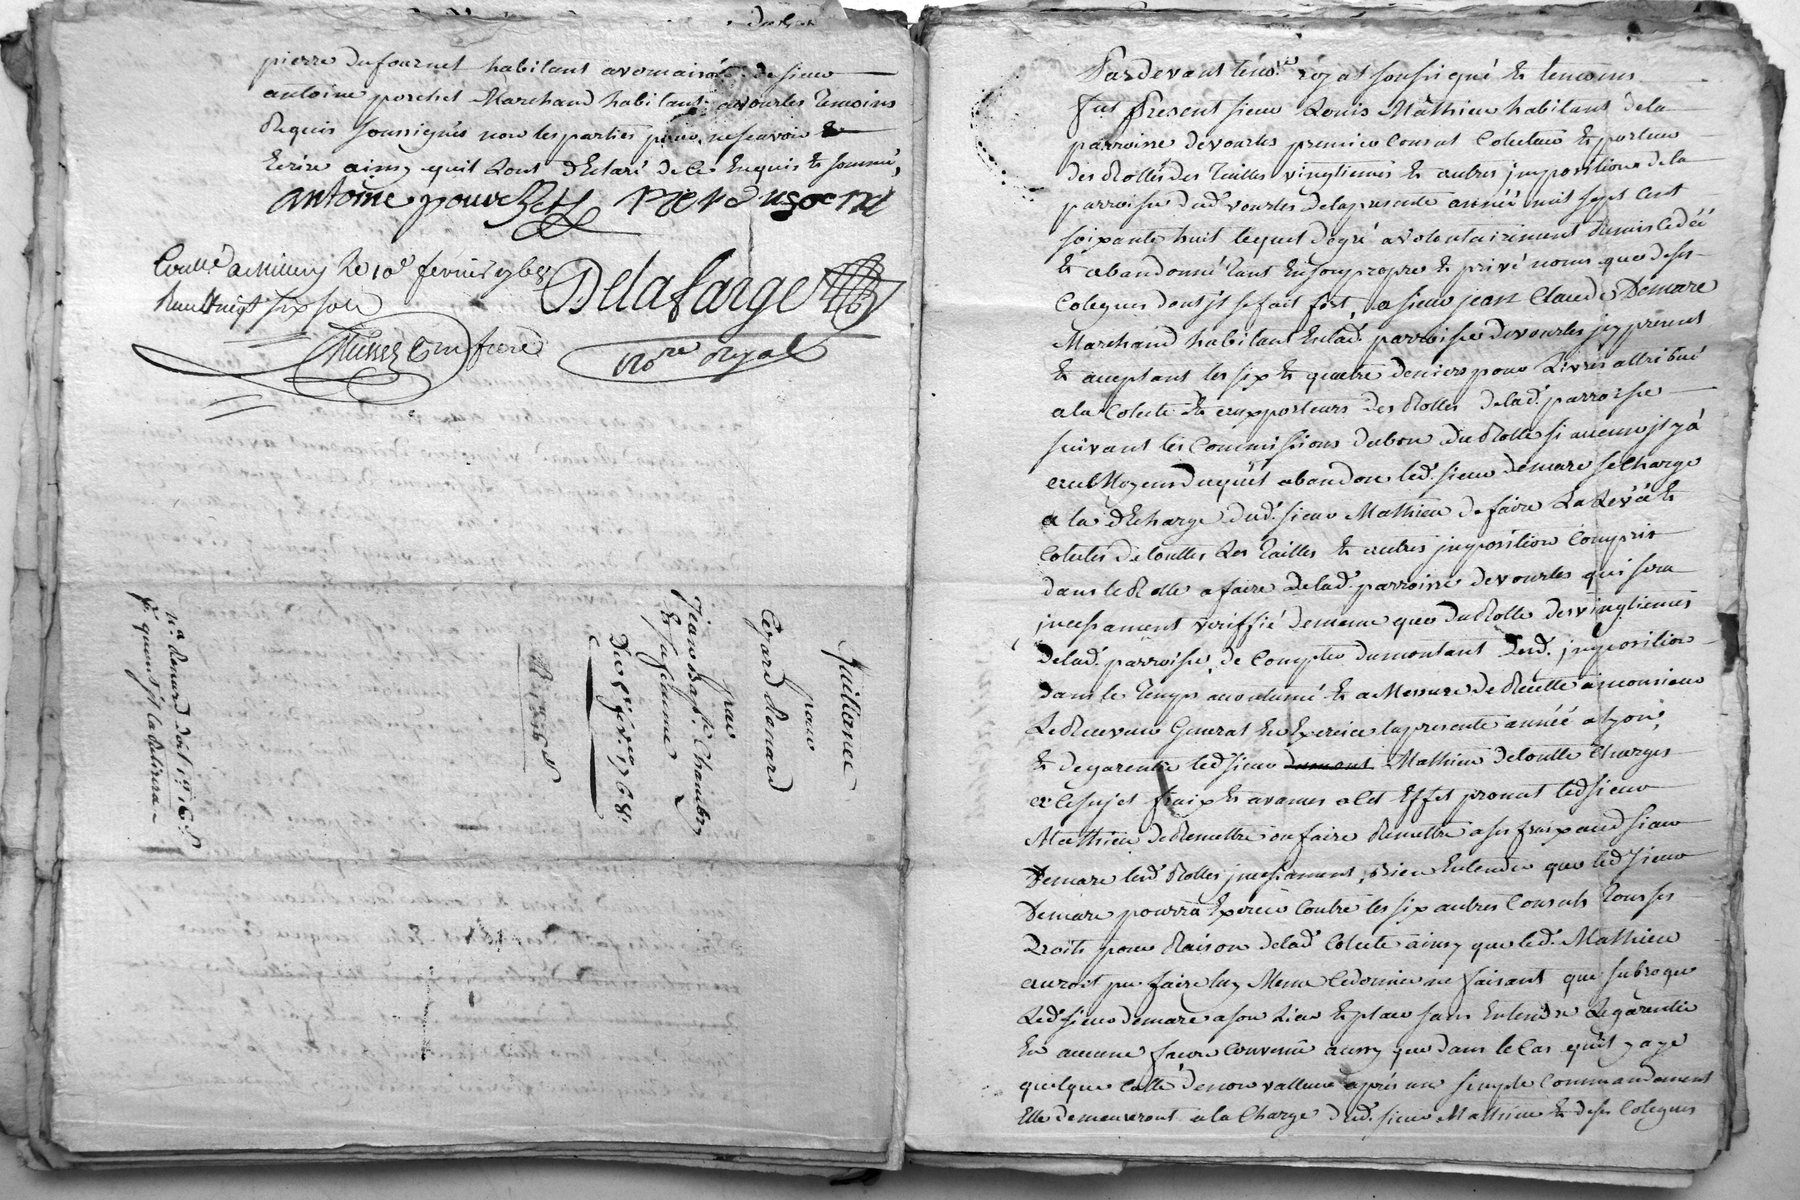 pierre dufournet habitant a vernaison de sieur
antoine porchet Marchand habitant a vourles temoins
Requis soussignés non les parties pour ne scavoir
Ecrire ainsy quil Lont déclaré de ce Enquis et sommé,
antoine pierre dufournet
Conllé a Millery Le 10e fevrier 1768
Reçu vingt six sols
Delafarge
nore royal
Quittance
pour
Cezard Renard
pour
Jean Bapt. Chambry
et sa femme
Du 9 fevr 1768
Pardevant le no.re royal soussigné et temoins
fut Present sieur Louis Mathieu habitant de la
parroisse de vourles premier Consul Colecteur et porteur
des Rolles des Tailles vingtiemes et autres imposition de la
parroisse dud. vourles de la presente année mil sept cent
soixante huit lequel de gré a volontairement Remis cedéé
et abandonné tant En son propre et privé nom que de ses
Colegues dont jl se fait fort, a sieur jean Claude Demare
Marchand habitant En lad. parroisse de vourles jcy present
et aceptant les six et quatre deniers pour Livres attribué
a la Colecte et aux porteurs des Rolles de lad. parroisse
suivant les Commissions du bon du Rolle si aucun jl y à
au Moyen duquel abandon led. sieur demare se Charge
a la décharge dud. sieur Mathieu de faire La Levéé et
Colecte de touttes Les Tailles et autres jmposition Compris
dans le Rolle a faire de lad. parroisse de vourles qui sera
jncessament veriffié de meme que du Rolle des vingtiemes
de lad. parroisse, de Compter du montant desd. jmposition
dans le temps acoutumé et a Messure de Recette a monsieur
Le Receveur General En Exercice la presente année a Lyon,
et de garentir led sieur dumont Mathieu de toutte Charges
a ce sujet fraix et avances a Cet Effet promet led sieur
Mathieu de Remettre ou faire Remettre a ses fraix aud sieur
Demare lesd. Rolles jncessament, Bien Entendu que led sieur
Demare pourra Exercer Contre les six autres Consuls tous ses
Droits pour Raison de lad. Colecte ainsy que led. Mathieu
auroit pu faire luy Meme Ce dernier ne faisant que subroger
Led. sieur demare a son Lieu et place sans Entendre Le garentir
En aucune facon Convenu aussy que dans le Cas quil y aye
quelque Cotté de non valleur après un simple Commandement
Elle demeureront a la Charge dud. sieur Mathieu et de ses Colegues